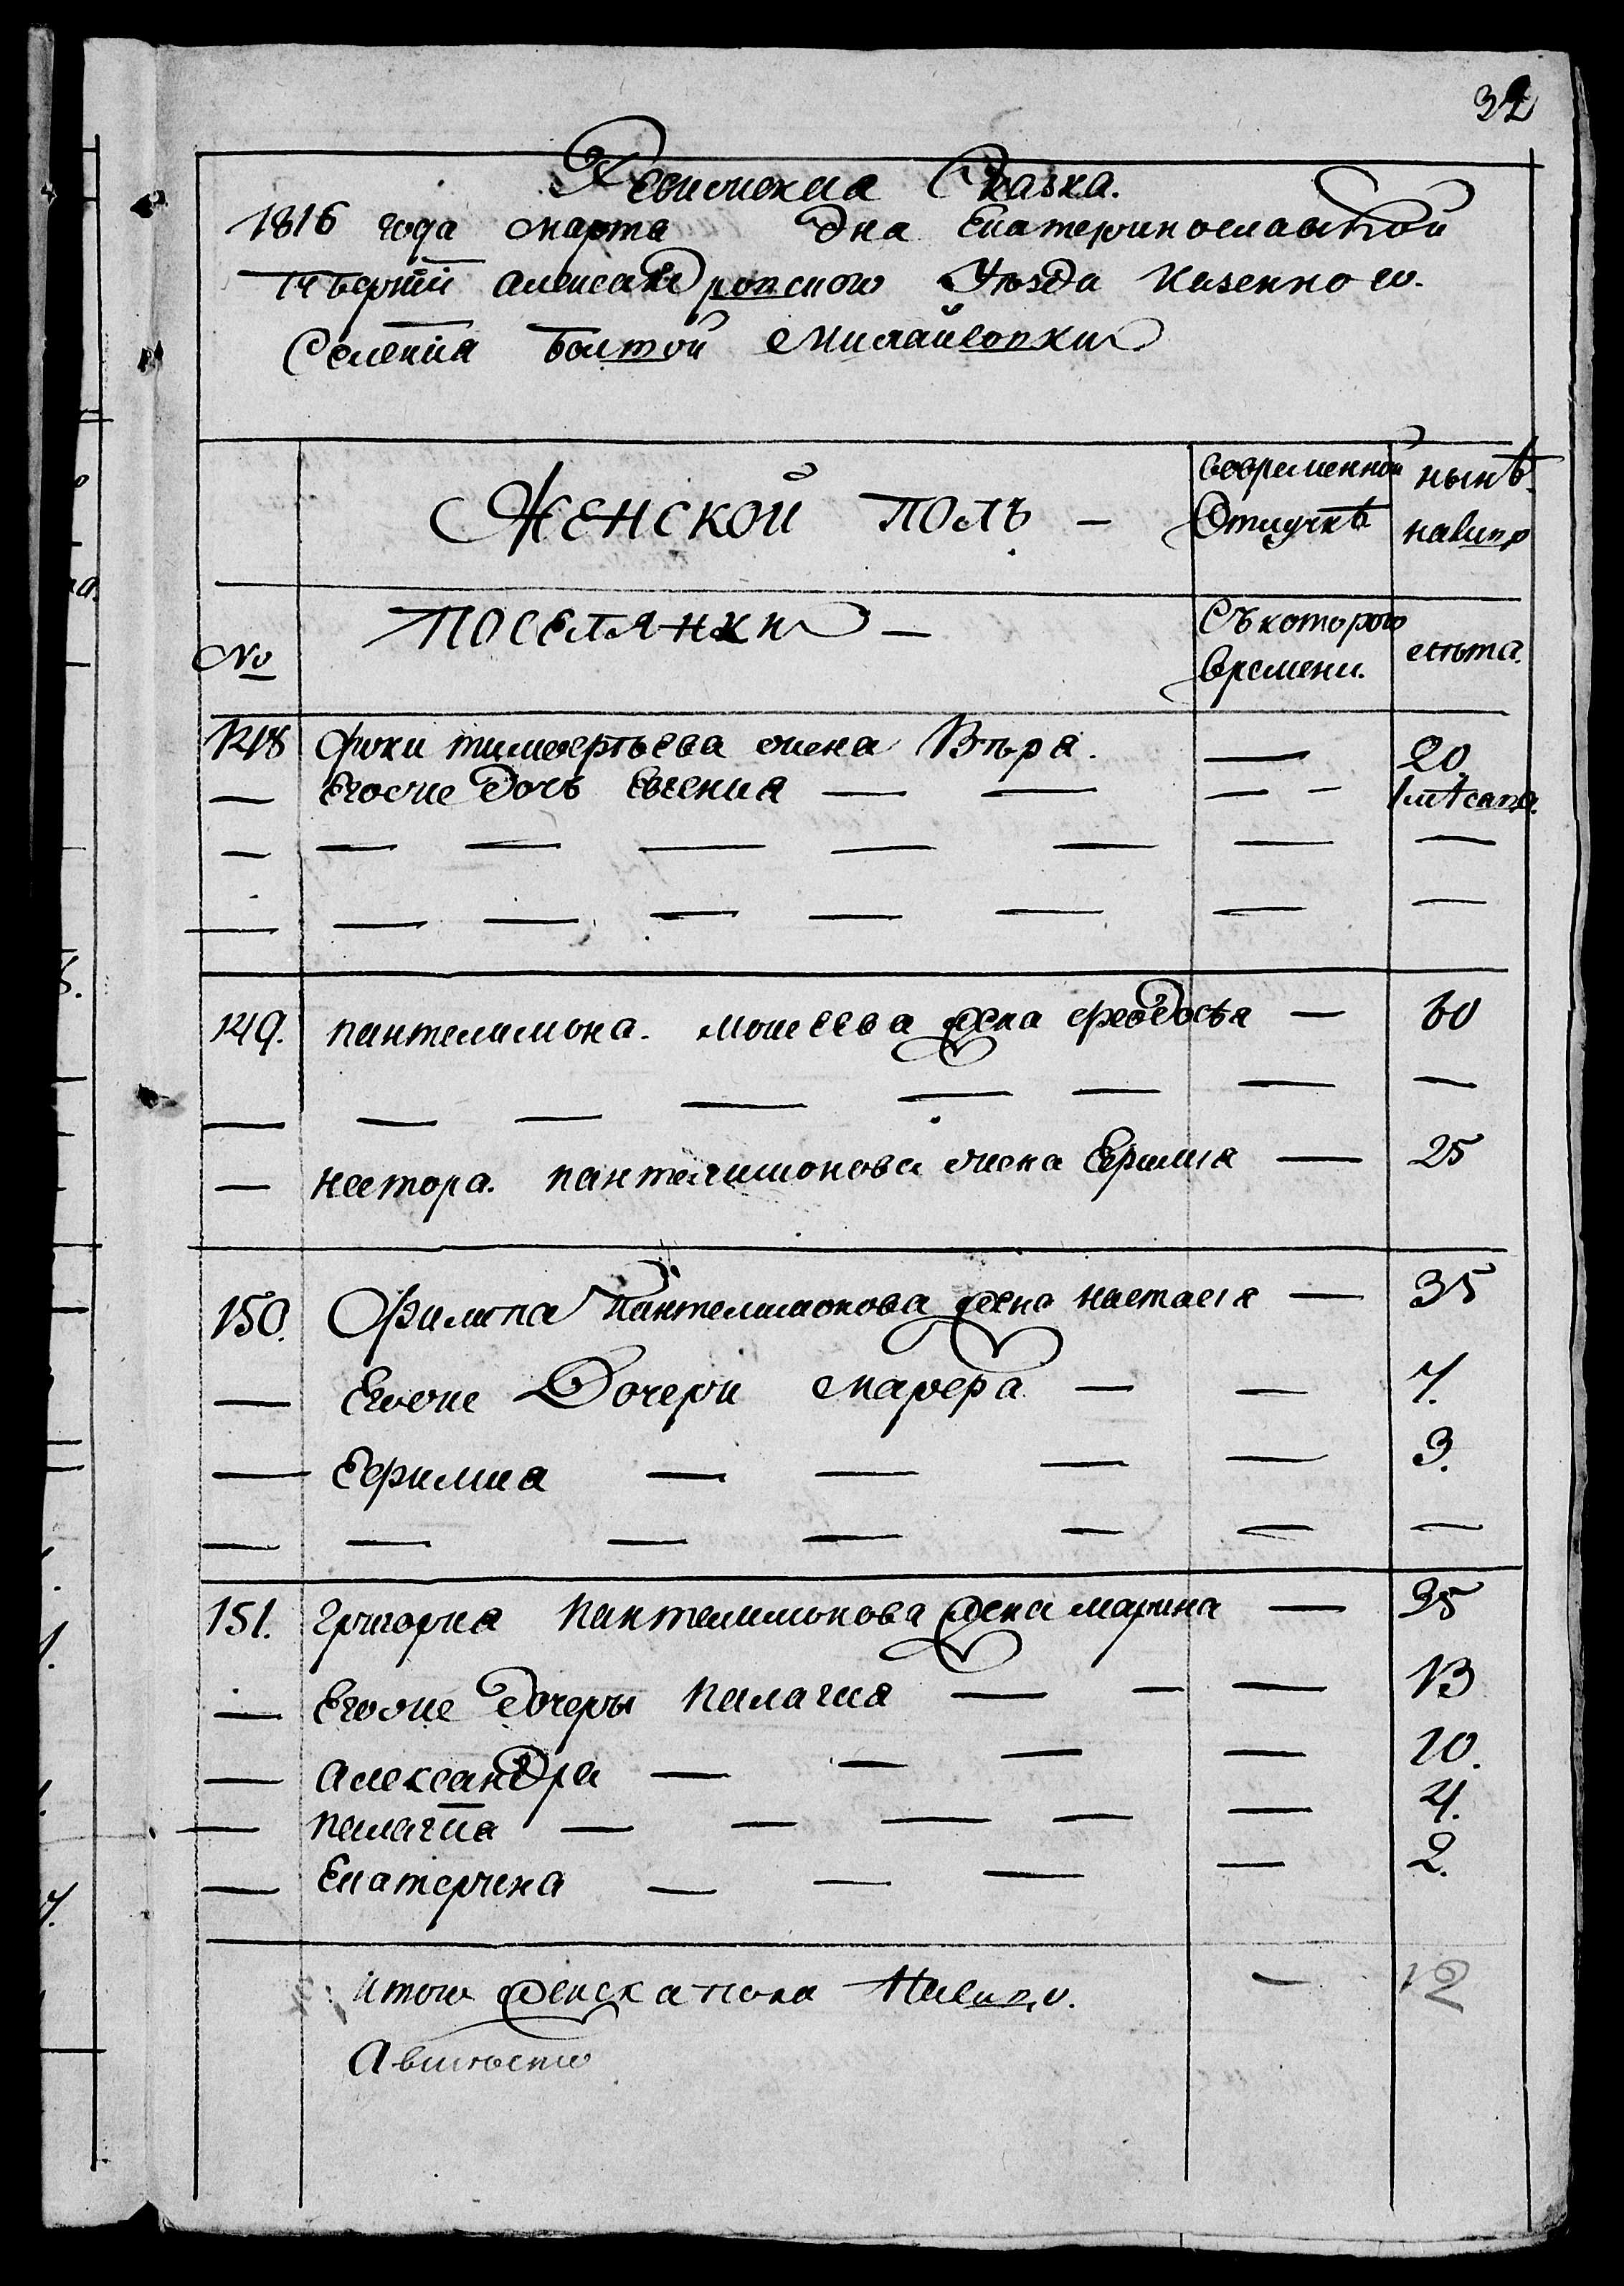 32
Ревижския Сказка.
1816 года марта дна Екатеринославской
Губернїи александровского Уѣзда казенного
Селения Болтой Михайловки
Женской полъ — вовременной Отлучкѣ нынѣ налицо
№ Поселянки — Съ которого времени. лѣта.
148 Фоки тимофеѣева жена Вѣра. — 20
— Егоже дочь Евгения — — — — 1 мѣсаца.
149. пантелимона. моисеева жена феодосѣя — 60
— нестора. пантелимонова жена Ефимия — 25
150. Филипа Пантелимонова жена настасия — 35
— Егоже Дочери марфа — — 7.
— Ефимиа — — — — 3.
151. Григория пантелимонова жена марина — 35
— Егоже дочеры палагия — — — 13
— александра — — — — 10.
— палагїа — — — — — 4.
— Екатерина — — — — 2.
итого женска пола налицо. — 12